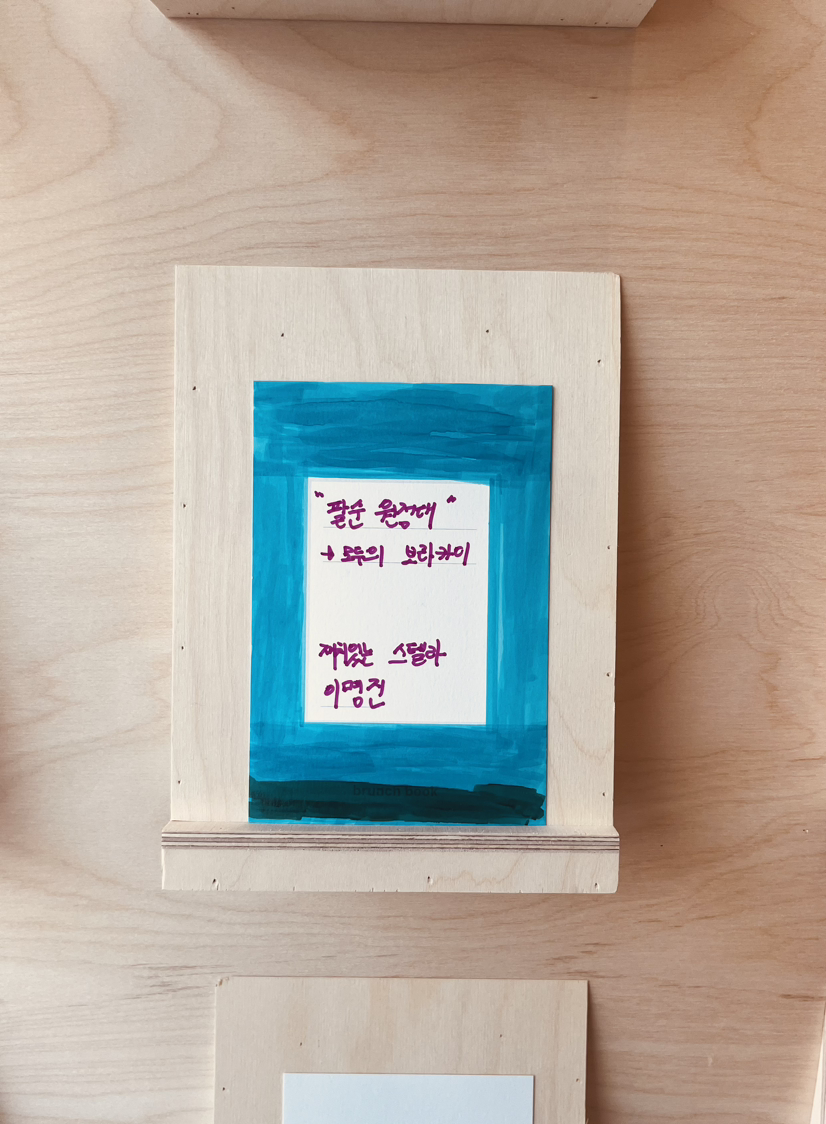 "팔순 원정대"
→ 모두의 보라카이
재치있는 스텔라
이명진
brunch book